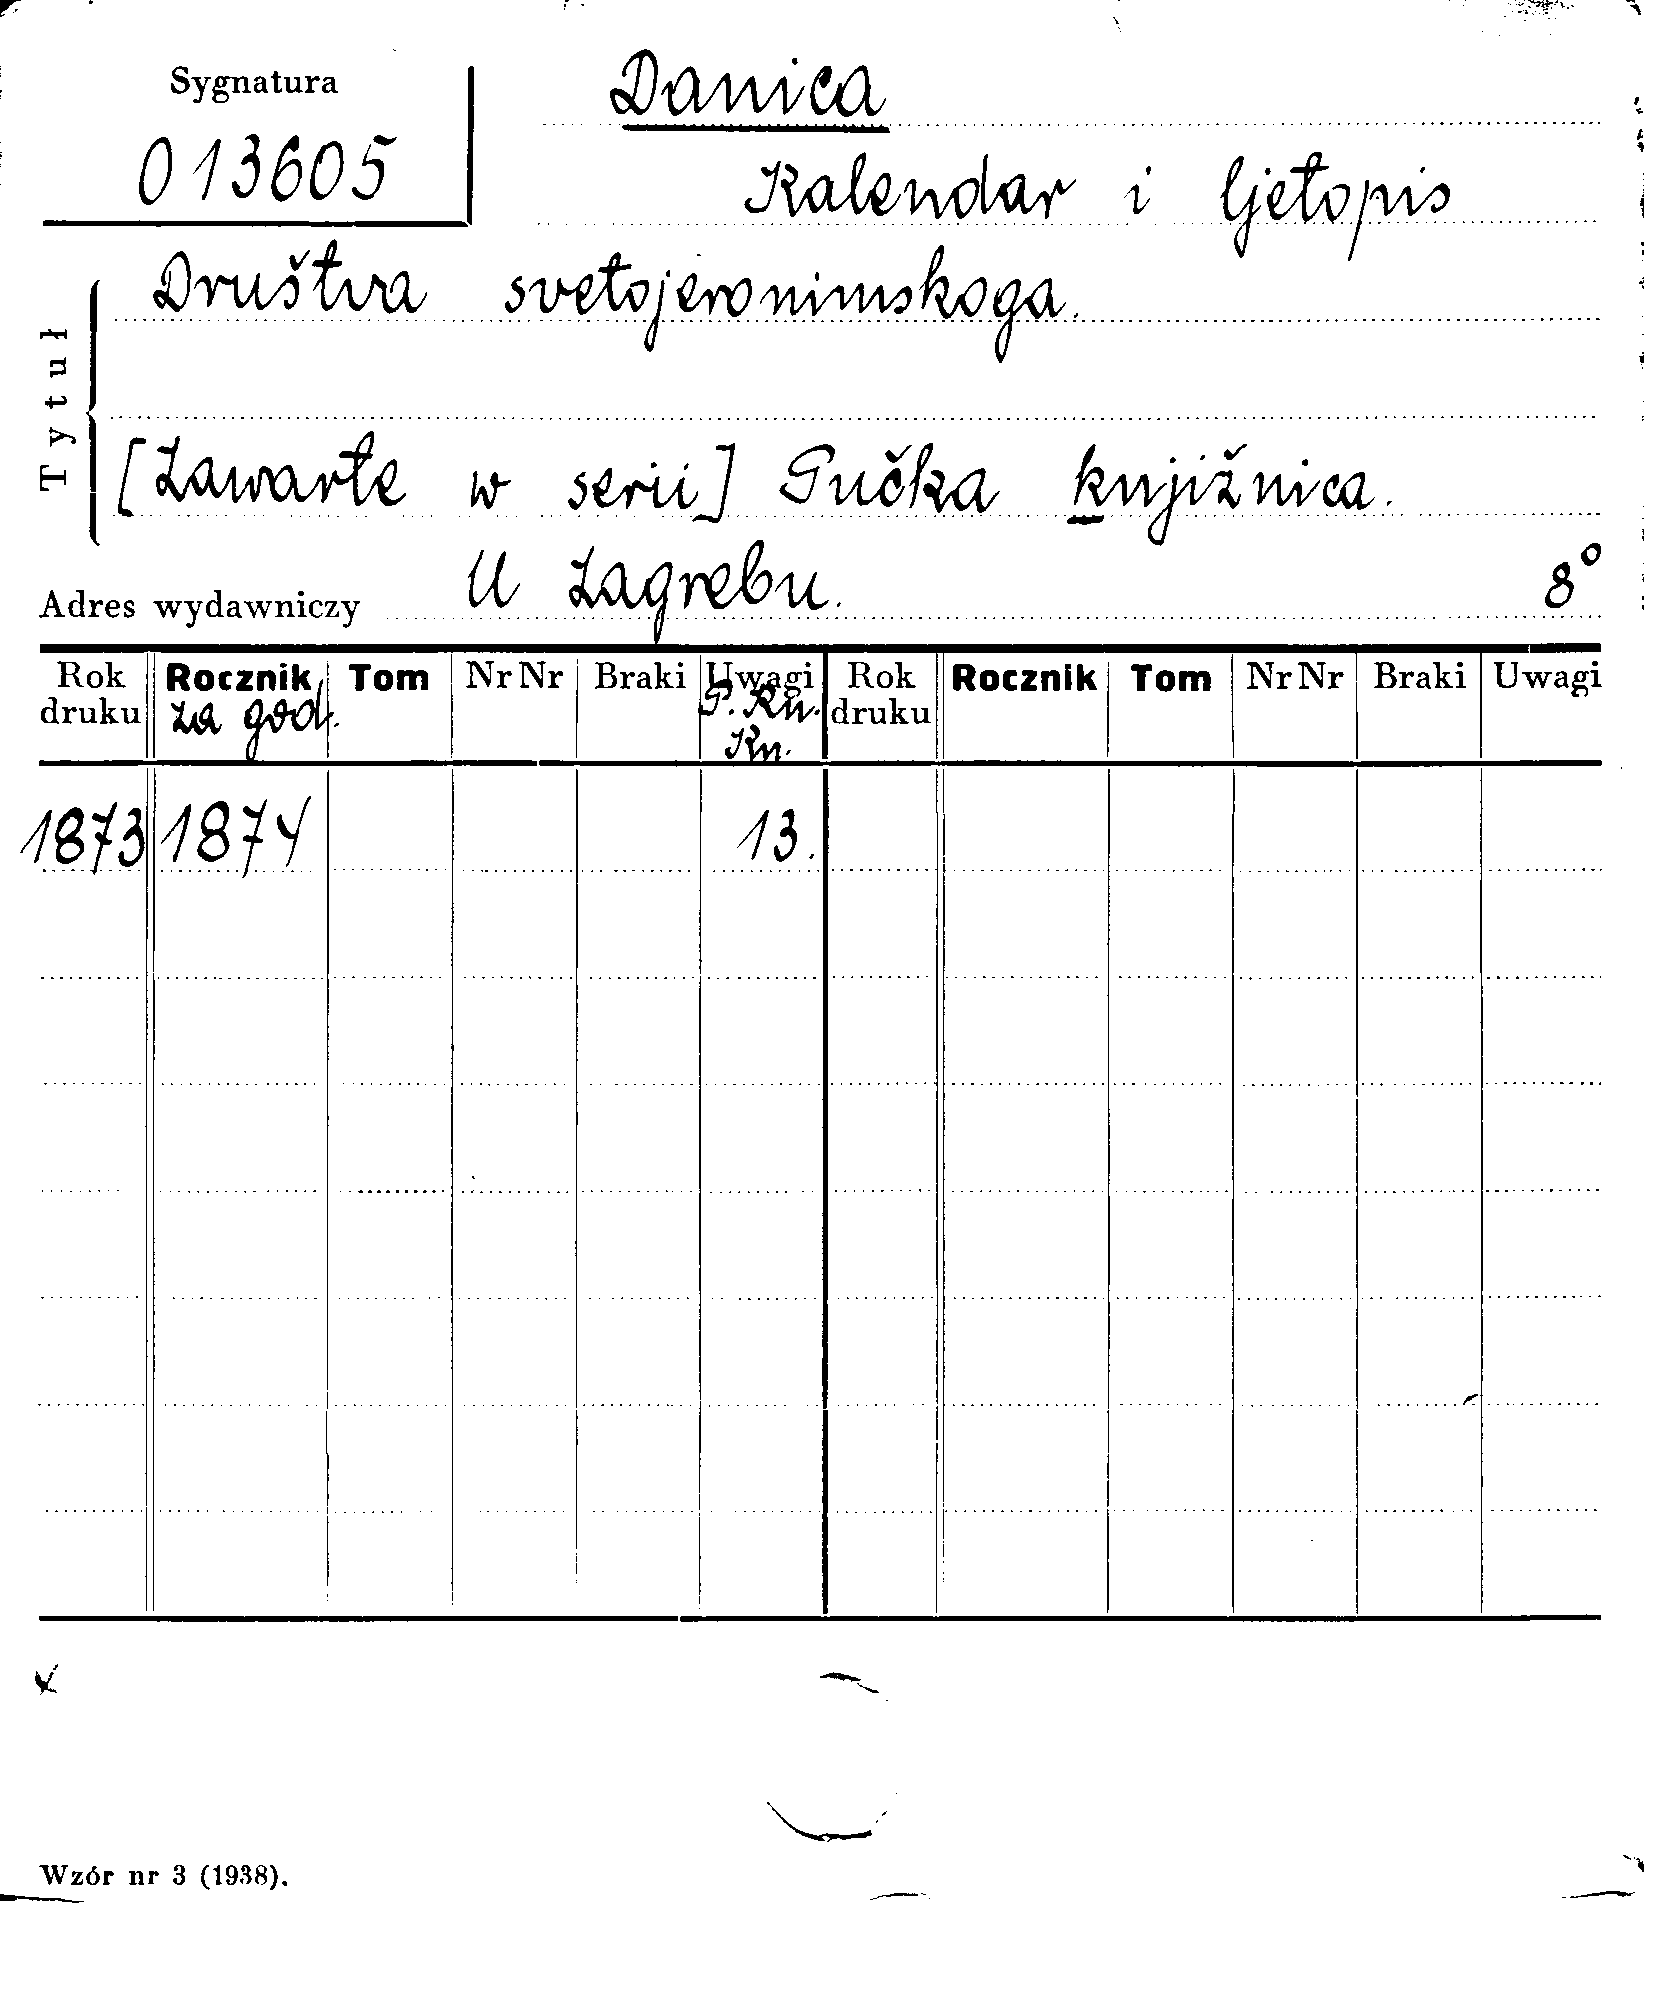 Sygnatura
013605
Danica
Kalendar i ljetopis
Društva svetojeronimskoga.
Tytuł
[Zawarte w serii] Pučka knjižnica.
Adres wydawniczy U Zagrebu. 8°
Rok druku Rocznik Tom Nr Nr Braki Uwagi Rok druku Rocznik Tom Nr Nr Braki Uwagi
za god. P. Kn.
Kn.
1873 1874 13.
Wzór nr 3 (1938).